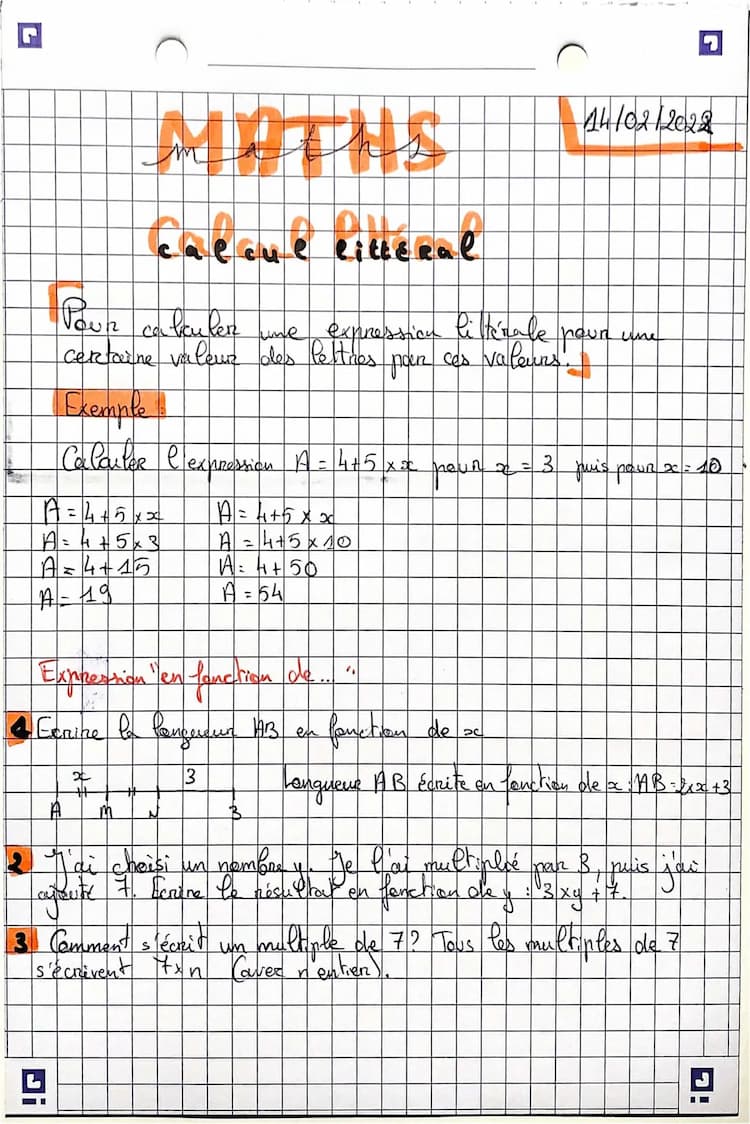 14/02/2022
MATHS
maths
Calcul littéral
Pour calculer une expression littérale pour une
certaine valeur des lettres par ces valeurs.
Exemple:
Calculer l'expression A = 4+5×x pour x = 3 puis pour x = 10
A = 4+5×x A = 4+5×x
A = 4+5×3 A = 4+5×10
A = 4+15 A = 4+50
A = 19 A = 54
Expression "en fonction de... "
1 Ecrire la longueur AB en fonction de x
x 3 Longueur AB écrite en fonction de x : AB = 2×x+3
A M N B
2 J'ai choisi un nombre y. Je l'ai multiplié par 3, puis j'ai
ajouté 7. Ecrire le résultat en fonction de y : 3×y+7.
3 Comment s'écrit un multiple de 7? Tous les multiples de 7
s'écrivent 7×n (avec n entier).